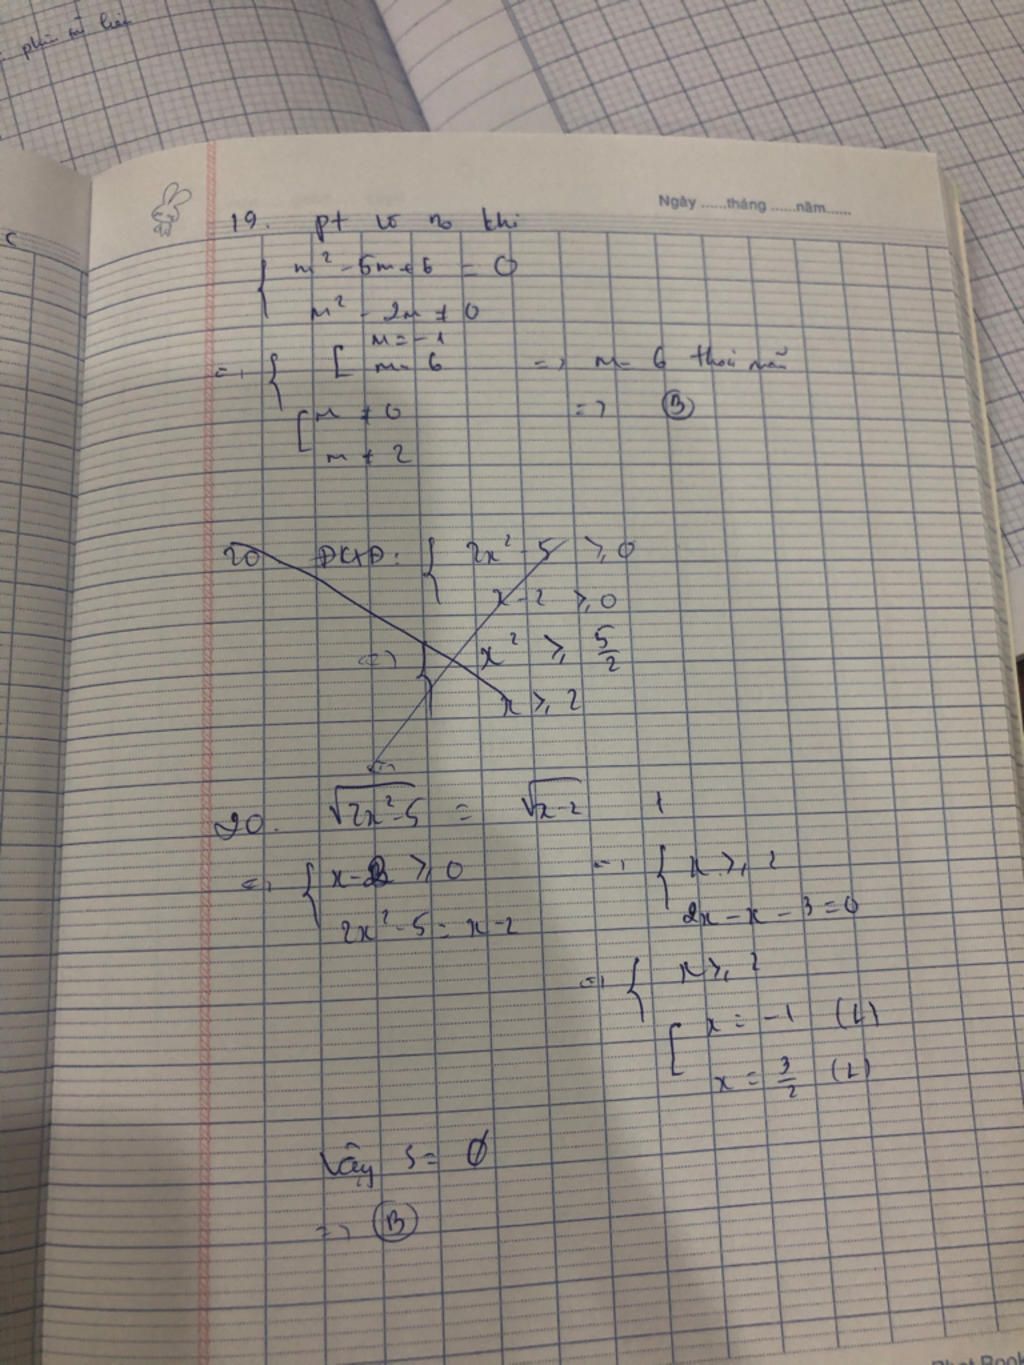 Ngày ......tháng ......năm......
19. pt vô no khi
{ m² - 5m + 6 = 0
m² - 2m ≠ 0
=> { [ m = -1
m = 6 => m = 6 thoả mãn
[ m ≠ 0 => (B)
m ≠ 2
20 ĐKXĐ: { 2x² - 5 ⩾ 0
x - 2 ⩾ 0
<=> { x² ⩾ 5/2
x ⩾ 2
20. √2x²-5 = √x-2
<=> { x - 2 ⩾ 0 => { x ⩾ 2
2x² - 5 = x - 2 2x - x - 3 = 0
=> { x ⩾ 2
[ x = -1 (L)
x = 3/2 (L)
Vậy S = Ø
=> (B)